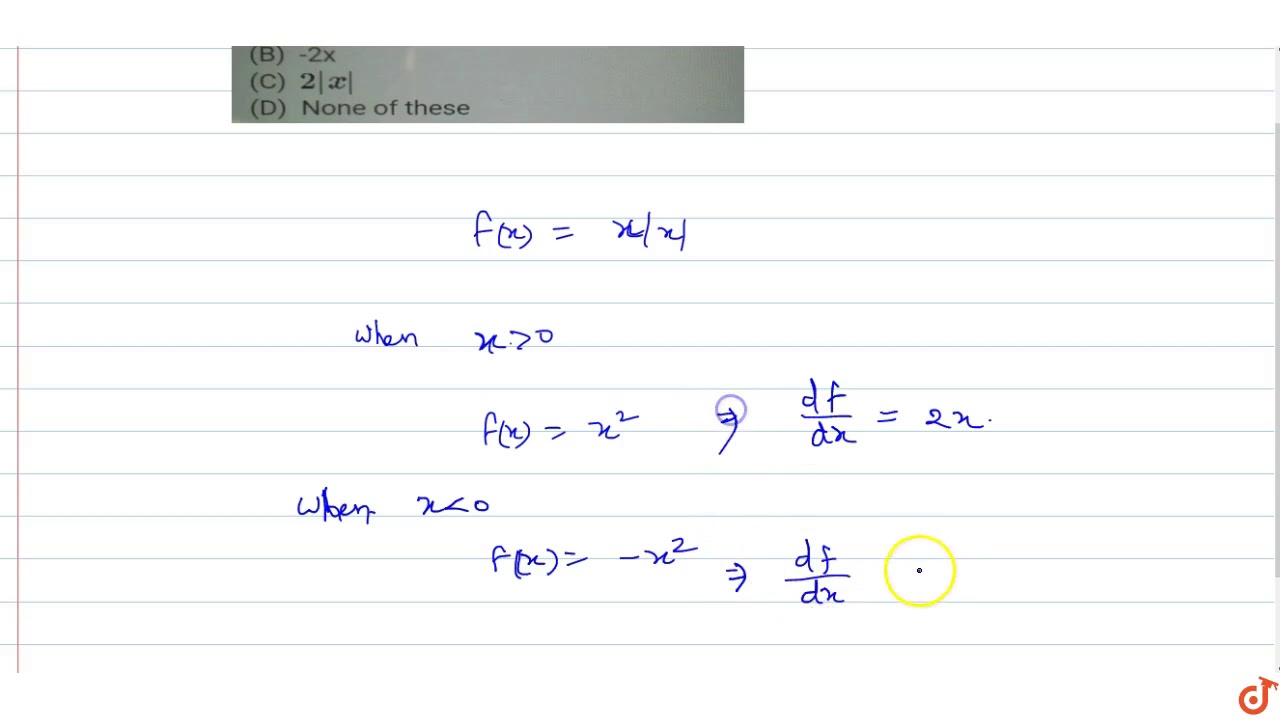 (B) -2x
(C) 2|x|
(D) None of these
f(x) = x|x|
when x>0
f(x) = x² ⇒ df/dx = 2x.
when x<0
f(x) = -x² ⇒ df/dx